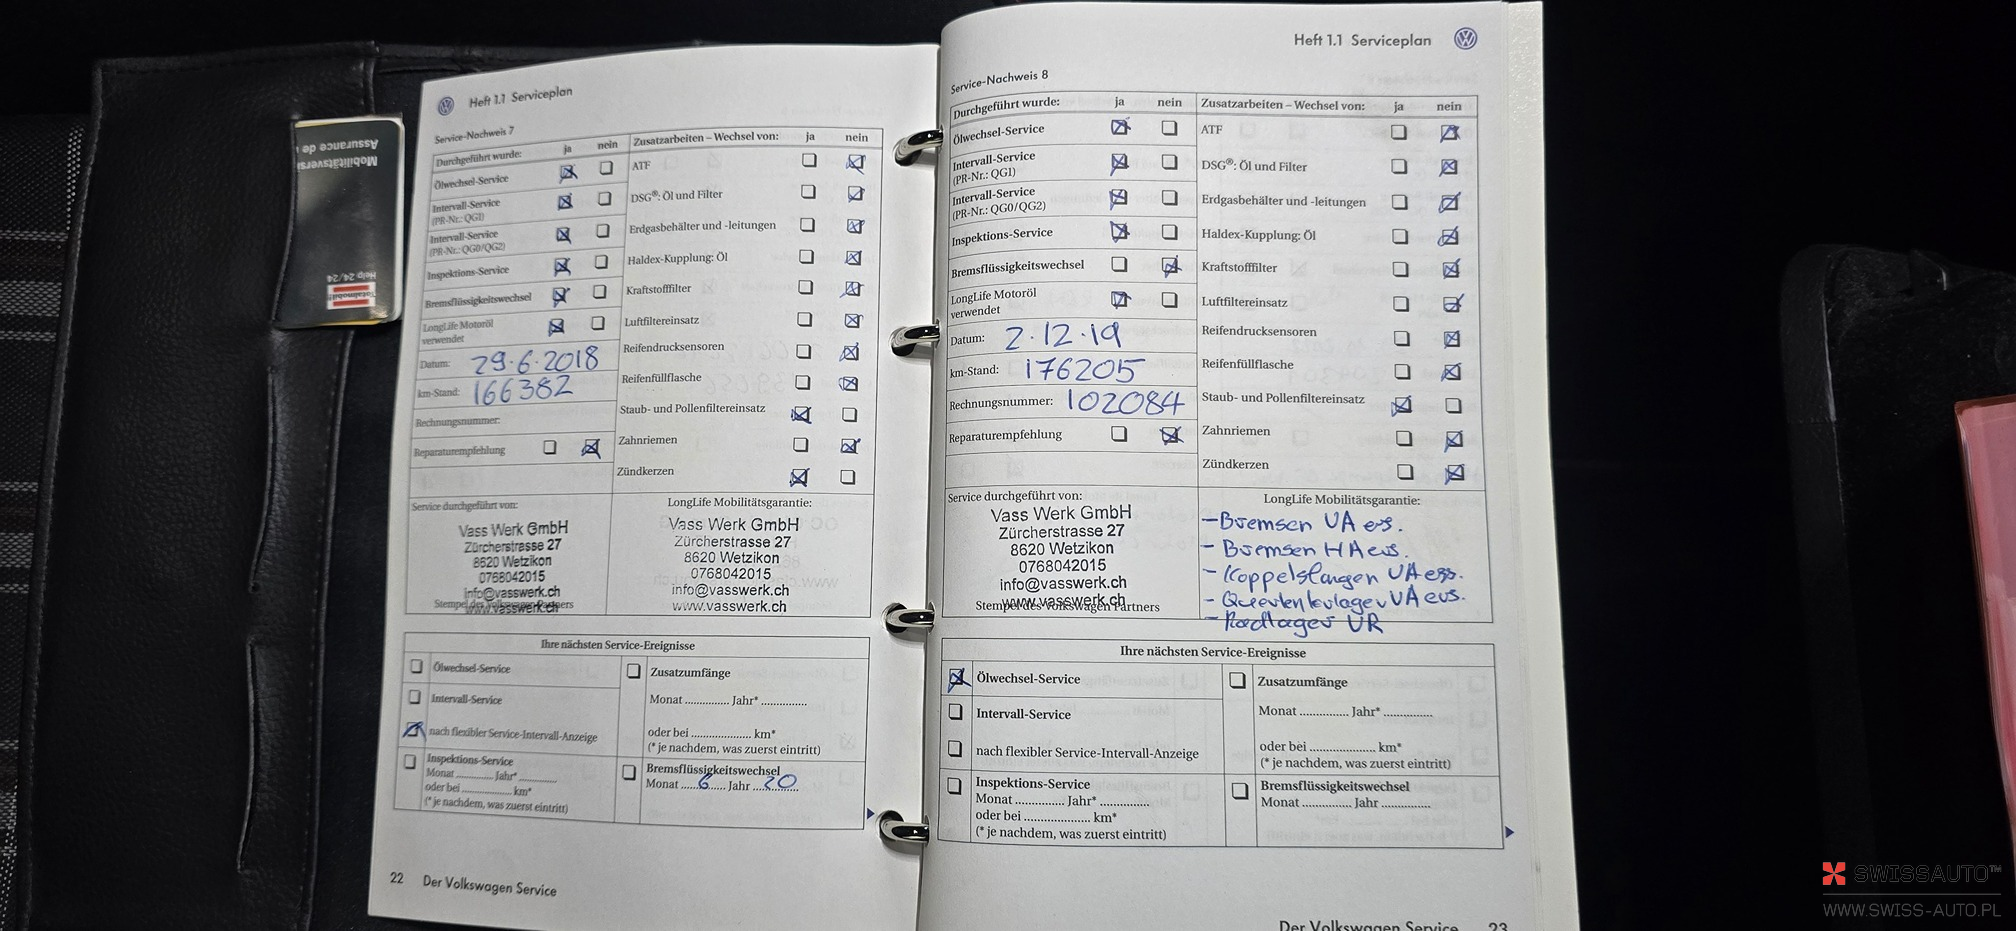 Mobilitätsversi
Assurance de
Help 24/24
Totalmobil!
Heft 1.1 Serviceplan
Service-Nachweis 7
Durchgeführt wurde: ja nein
Ölwechsel-Service
Intervall-Service
(PR-Nr.: QG1)
Intervall-Service
(PR-Nr.: QG0/QG2)
Inspektions-Service
Bremsflüssigkeitswechsel
LongLife Motoröl
verwendet
Datum: 29.6.2018
km-Stand: 166382
Rechnungsnummer:
Reparaturempfehlung
Zusatzarbeiten – Wechsel von: ja nein
ATF
DSG®: Öl und Filter
Erdgasbehälter und -leitungen
Haldex-Kupplung: Öl
Kraftstofffilter
Luftfiltereinsatz
Reifendrucksensoren
Reifenfüllflasche
Staub- und Pollenfiltereinsatz
Zahnriemen
Zündkerzen
Service durchgeführt von:
Vass Werk GmbH
Zürcherstrasse 27
8620 Wetzikon
0768042015
info@vasswerk.ch
www.vasswerk.ch
Stempel des Volkswagen Partners
LongLife Mobilitätsgarantie:
Vass Werk GmbH
Zürcherstrasse 27
8620 Wetzikon
0768042015
info@vasswerk.ch
www.vasswerk.ch
Ihre nächsten Service-Ereignisse
Ölwechsel-Service
Intervall-Service
nach flexibler Service-Intervall-Anzeige
Inspektions-Service
Monat ............. Jahr* .............
oder bei .................... km*
(* je nachdem, was zuerst eintritt)
Zusatzumfänge
Monat ............. Jahr* .............
oder bei .................... km*
(* je nachdem, was zuerst eintritt)
Bremsflüssigkeitswechsel
Monat ......6...... Jahr ...20.........
22 Der Volkswagen Service
Heft 1.1 Serviceplan
Service-Nachweis 8
Durchgeführt wurde: ja nein
Ölwechsel-Service
Intervall-Service
(PR-Nr.: QG1)
Intervall-Service
(PR-Nr.: QG0/QG2)
Inspektions-Service
Bremsflüssigkeitswechsel
LongLife Motoröl
verwendet
Datum: 2.12.19
km-Stand: 176205
Rechnungsnummer: 102084
Reparaturempfehlung
Zusatzarbeiten – Wechsel von: ja nein
ATF
DSG®: Öl und Filter
Erdgasbehälter und -leitungen
Haldex-Kupplung: Öl
Kraftstofffilter
Luftfiltereinsatz
Reifendrucksensoren
Reifenfüllflasche
Staub- und Pollenfiltereinsatz
Zahnriemen
Zündkerzen
Service durchgeführt von:
Vass Werk GmbH
Zürcherstrasse 27
8620 Wetzikon
0768042015
info@vasswerk.ch
www.vasswerk.ch
Stempel des Volkswagen Partners
LongLife Mobilitätsgarantie:
– Bremsen VA ers.
– Bremsen HA ers.
– Koppelstangen VA ers.
– Querlenkerlager VA ers.
– Radlager VR
Ihre nächsten Service-Ereignisse
Ölwechsel-Service
Intervall-Service
nach flexibler Service-Intervall-Anzeige
Inspektions-Service
Monat ............. Jahr* .............
oder bei .................... km*
(* je nachdem, was zuerst eintritt)
Zusatzumfänge
Monat ............. Jahr* .............
oder bei .................... km*
(* je nachdem, was zuerst eintritt)
Bremsflüssigkeitswechsel
Monat ............. Jahr .............
Der Volkswagen Service 23
SWISSAUTO™
WWW.SWISS-AUTO.PL